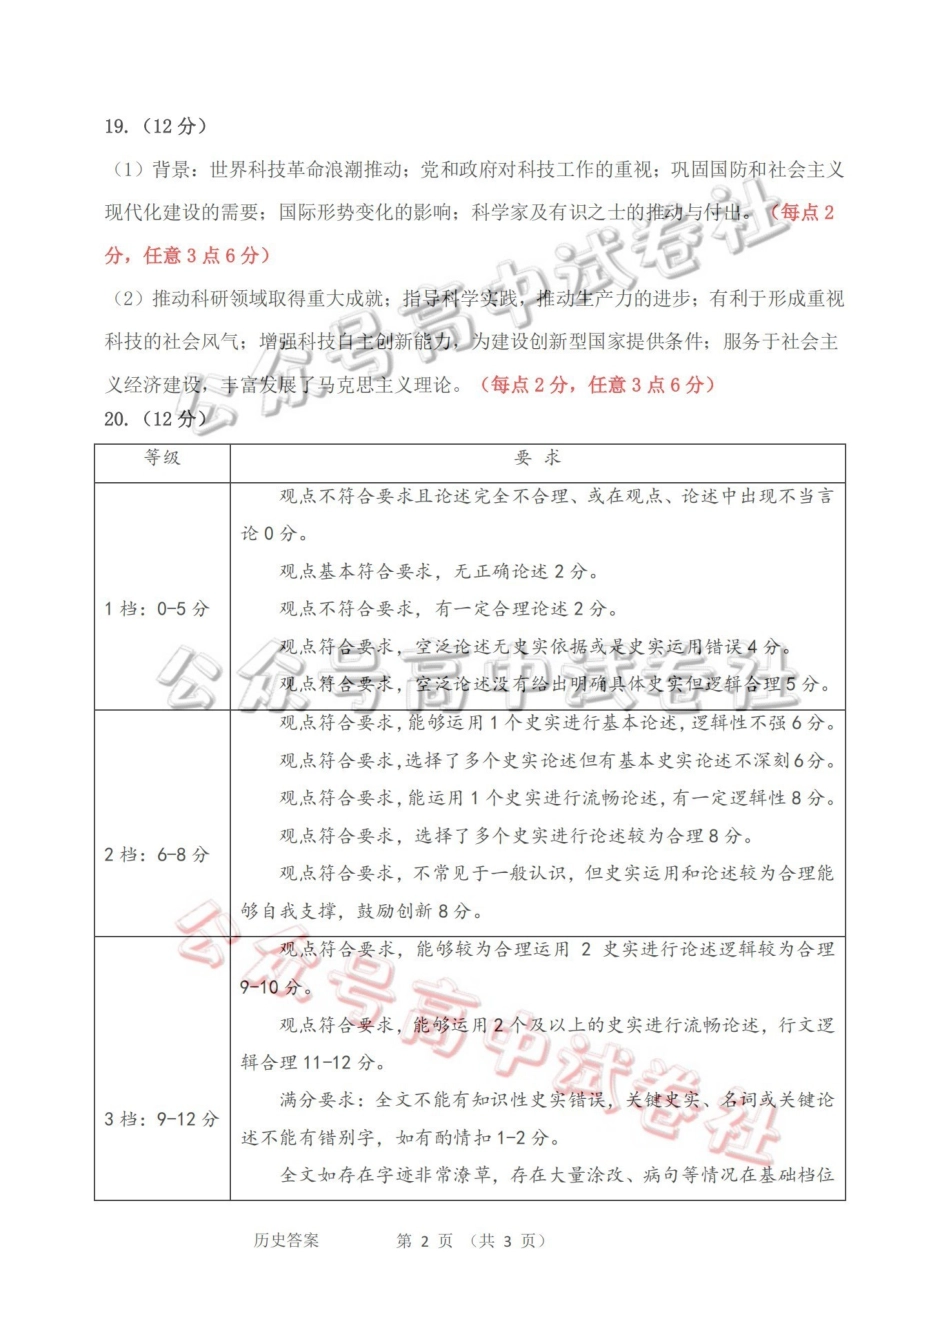 19.（12 分）
（1）背景：世界科技革命浪潮推动；党和政府对科技工作的重视；巩固国防和社会主义
现代化建设的需要；国际形势变化的影响；科学家及有识之士的推动与付出。（每点 2
分，任意 3 点 6 分）
（2）推动科研领域取得重大成就；指导科学实践，推动生产力的进步；有利于形成重视
科技的社会风气；增强科技自主创新能力，为建设创新型国家提供条件；服务于社会主
义经济建设，丰富发展了马克思主义理论。（每点 2 分，任意 3 点 6 分）
20.（12 分）
等级
要 求
1 档：0-5 分
观点不符合要求且论述完全不合理、或在观点、论述中出现不当言
论 0 分。
观点基本符合要求，无正确论述 2 分。
观点不符合要求，有一定合理论述 2 分。
观点符合要求，空泛论述无史实依据或是史实运用错误 4 分。
观点符合要求，空泛论述没有给出明确具体史实但逻辑合理 5 分。
2 档：6-8 分
观点符合要求，能够运用 1 个史实进行基本论述，逻辑性不强 6 分。
观点符合要求，选择了多个史实论述但有基本史实论述不深刻 6 分。
观点符合要求，能运用 1 个史实进行流畅论述，有一定逻辑性 8 分。
观点符合要求，选择了多个史实进行论述较为合理 8 分。
观点符合要求，不常见于一般认识，但史实运用和论述较为合理能
够自我支撑，鼓励创新 8 分。
3 档：9-12 分
观点符合要求，能够较为合理运用 2 史实进行论述逻辑较为合理
9-10 分。
观点符合要求，能够运用 2 个及以上的史实进行流畅论述，行文逻
辑合理 11-12 分。
满分要求：全文不能有知识性史实错误，关键史实、名词或关键论
述不能有错别字，如有酌情扣 1-2 分。
全文如存在字迹非常潦草，存在大量涂改、病句等情况在基础档位
历史答案
第 2 页 （共 3 页）
公众号高中试卷社
公众号高中试卷社
公众号高中试卷社